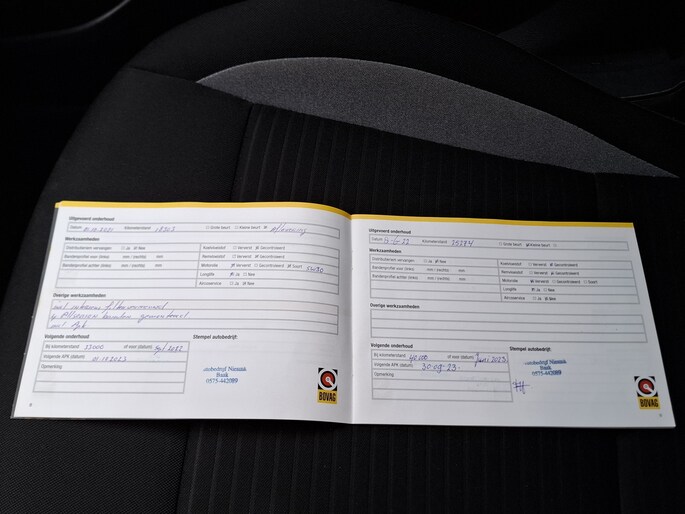 Uitgevoerd onderhoud
Datum Kilometerstand 18303 Grote beurt Kleine beurt
Werkzaamheden
Distributieriem vervangen: Ja Nee
Bandenprofiel voor (links): mm / (rechts): mm
Bandenprofiel achter (links): mm / (rechts): mm
Koelvloeistof Ververst Gecontroleerd
Remvloeistof Ververst Gecontroleerd
Motorolie Ververst Gecontroleerd Soort 5W30
Longlife Ja Nee
Aircoservice Ja Nee
Overige werkzaamheden
Volgende onderhoud
Bij kilometerstand: 33000 of voor (datum):
Volgende APK (datum):
Opmerking:
Stempel autobedrijf:
Autobedrijf Nassau
Baak
0575-442089
BOVAG
8
Uitgevoerd onderhoud
Datum Kilometerstand 25284 Grote beurt Kleine beurt
Werkzaamheden
Distributieriem vervangen: Ja Nee
Bandenprofiel voor (links): mm / (rechts): mm
Bandenprofiel achter (links): mm / (rechts): mm
Koelvloeistof Ververst Gecontroleerd
Remvloeistof Ververst Gecontroleerd
Motorolie Ververst Gecontroleerd Soort
Longlife Ja Nee
Aircoservice Ja Nee
Overige werkzaamheden
Volgende onderhoud
Bij kilometerstand: 40.000 of voor (datum): juni 2023
Volgende APK (datum): 30-09-23-
Opmerking:
Stempel autobedrijf:
Autobedrijf Nassau
Baak
0575-442089
BOVAG
9